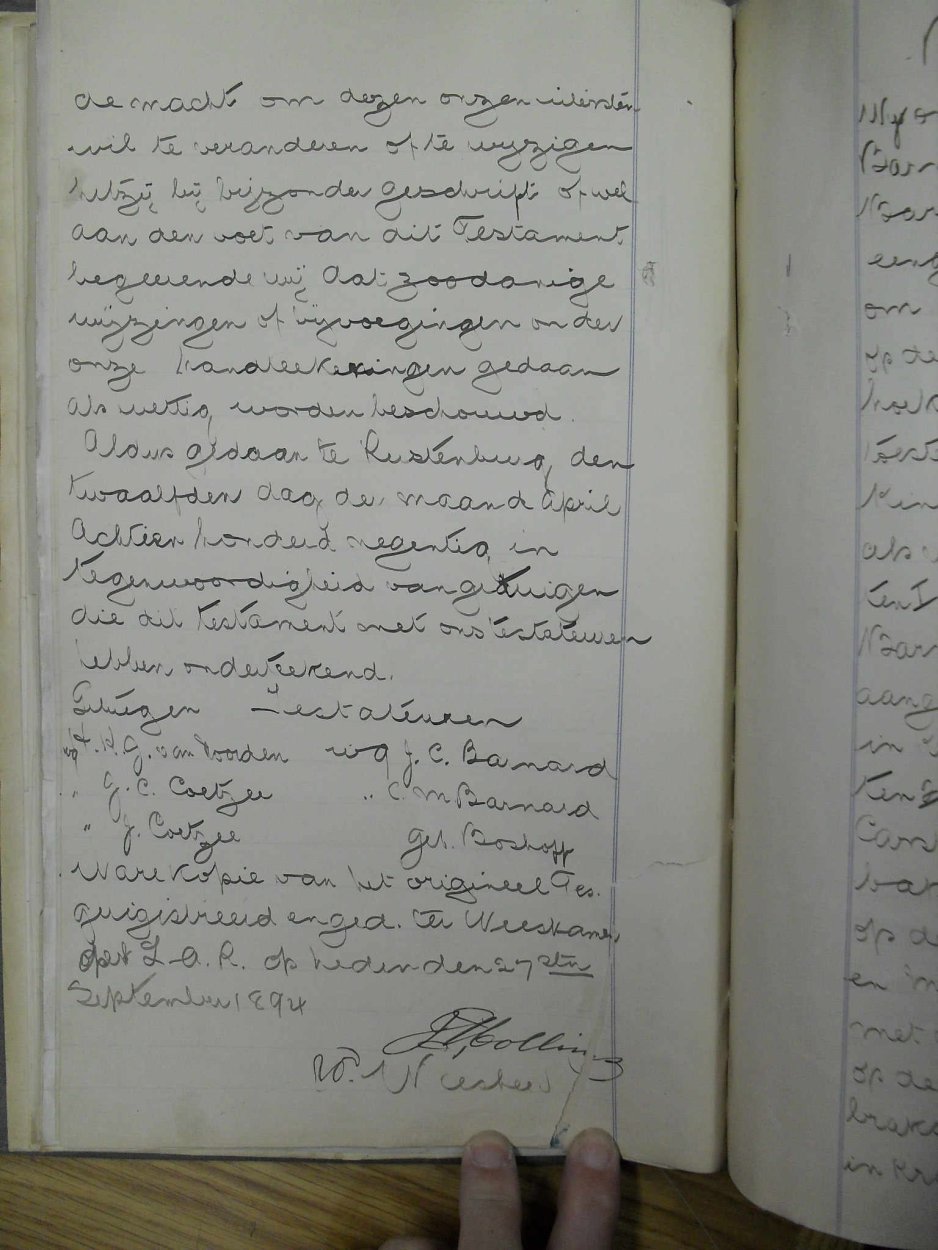 de macht om dezen onzen uitersten
wil te veranderen of te wyzigen
hetzij bij bijzonder geschrift of wel
aan den voet van dit Testament
begeerende wij dat zoodanige
wijzingen of bijvoegingen onder
onze handteekeningen gedaan
als wettig worden beschouwd.
Aldus gedaan te Rustenburg, den
twaalfden dag der maand April
Achtien honderd negentig in
tegenwoordigheid van getuigen
die dit testament met ons testateuren
hebben onderteekend.
Getuigen Testateuren
wg H. G. van Noorden wg J. C. Barnard
" J. C. Coetzee " C. M. Barnard
" J. Coetzee get. Boshoff
Ware Kopie van het origineel Tes.
geregistreerd en ged. ter Weeskamer
der Z. A. R. op heden den 27 sten
September 1894
Wd. Weesheer
Myo
Barn
Bar
eenig
om
op de
hoek
toeste
Kin
als
ten
Barn
aang
in
ten
Carol
op de
en in
met
op de
in